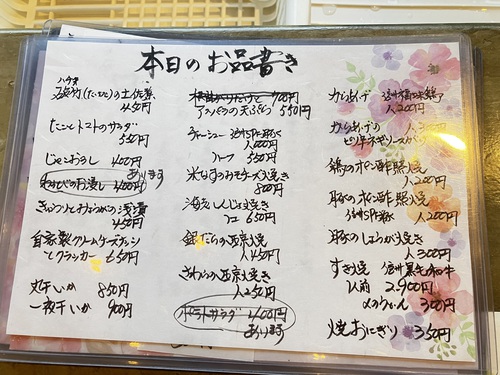 本日のお品書き
ハウス
筍(たけのこ)の土佐煮
450円
たことトマトのサラダ
550円
じゃこおろし 400円
あります
わさびのお浸し 400円
きゅうりとみょうがの浅漬
450円
自家製クリームチーズ
とクラッカー 650円
丸干いか 850円
一夜干いか 900円
700円
アスパラの天ぷら 550円
チャーシュー 信州SPF豚
1,000円
ハーフ 550円
米なすのみそチーズ焼き
800円
海老しんじょ揚
2コ 650円
銀だらの西京焼
1,450円
さわらの西京焼き
1,250円
ポテトサラダ 400円
あります
から揚げ
1,200円
から揚げの
ピリ辛ネギソースがけ
鶏のポン酢照焼
1,200円
豚のポン酢照焼
信州SPF豚 1,200円
豚のしょうが焼き
1,300円
すき焼 信州黒毛和牛
1人前 2,900円
〆のうどん 300円
焼おにぎり 350円